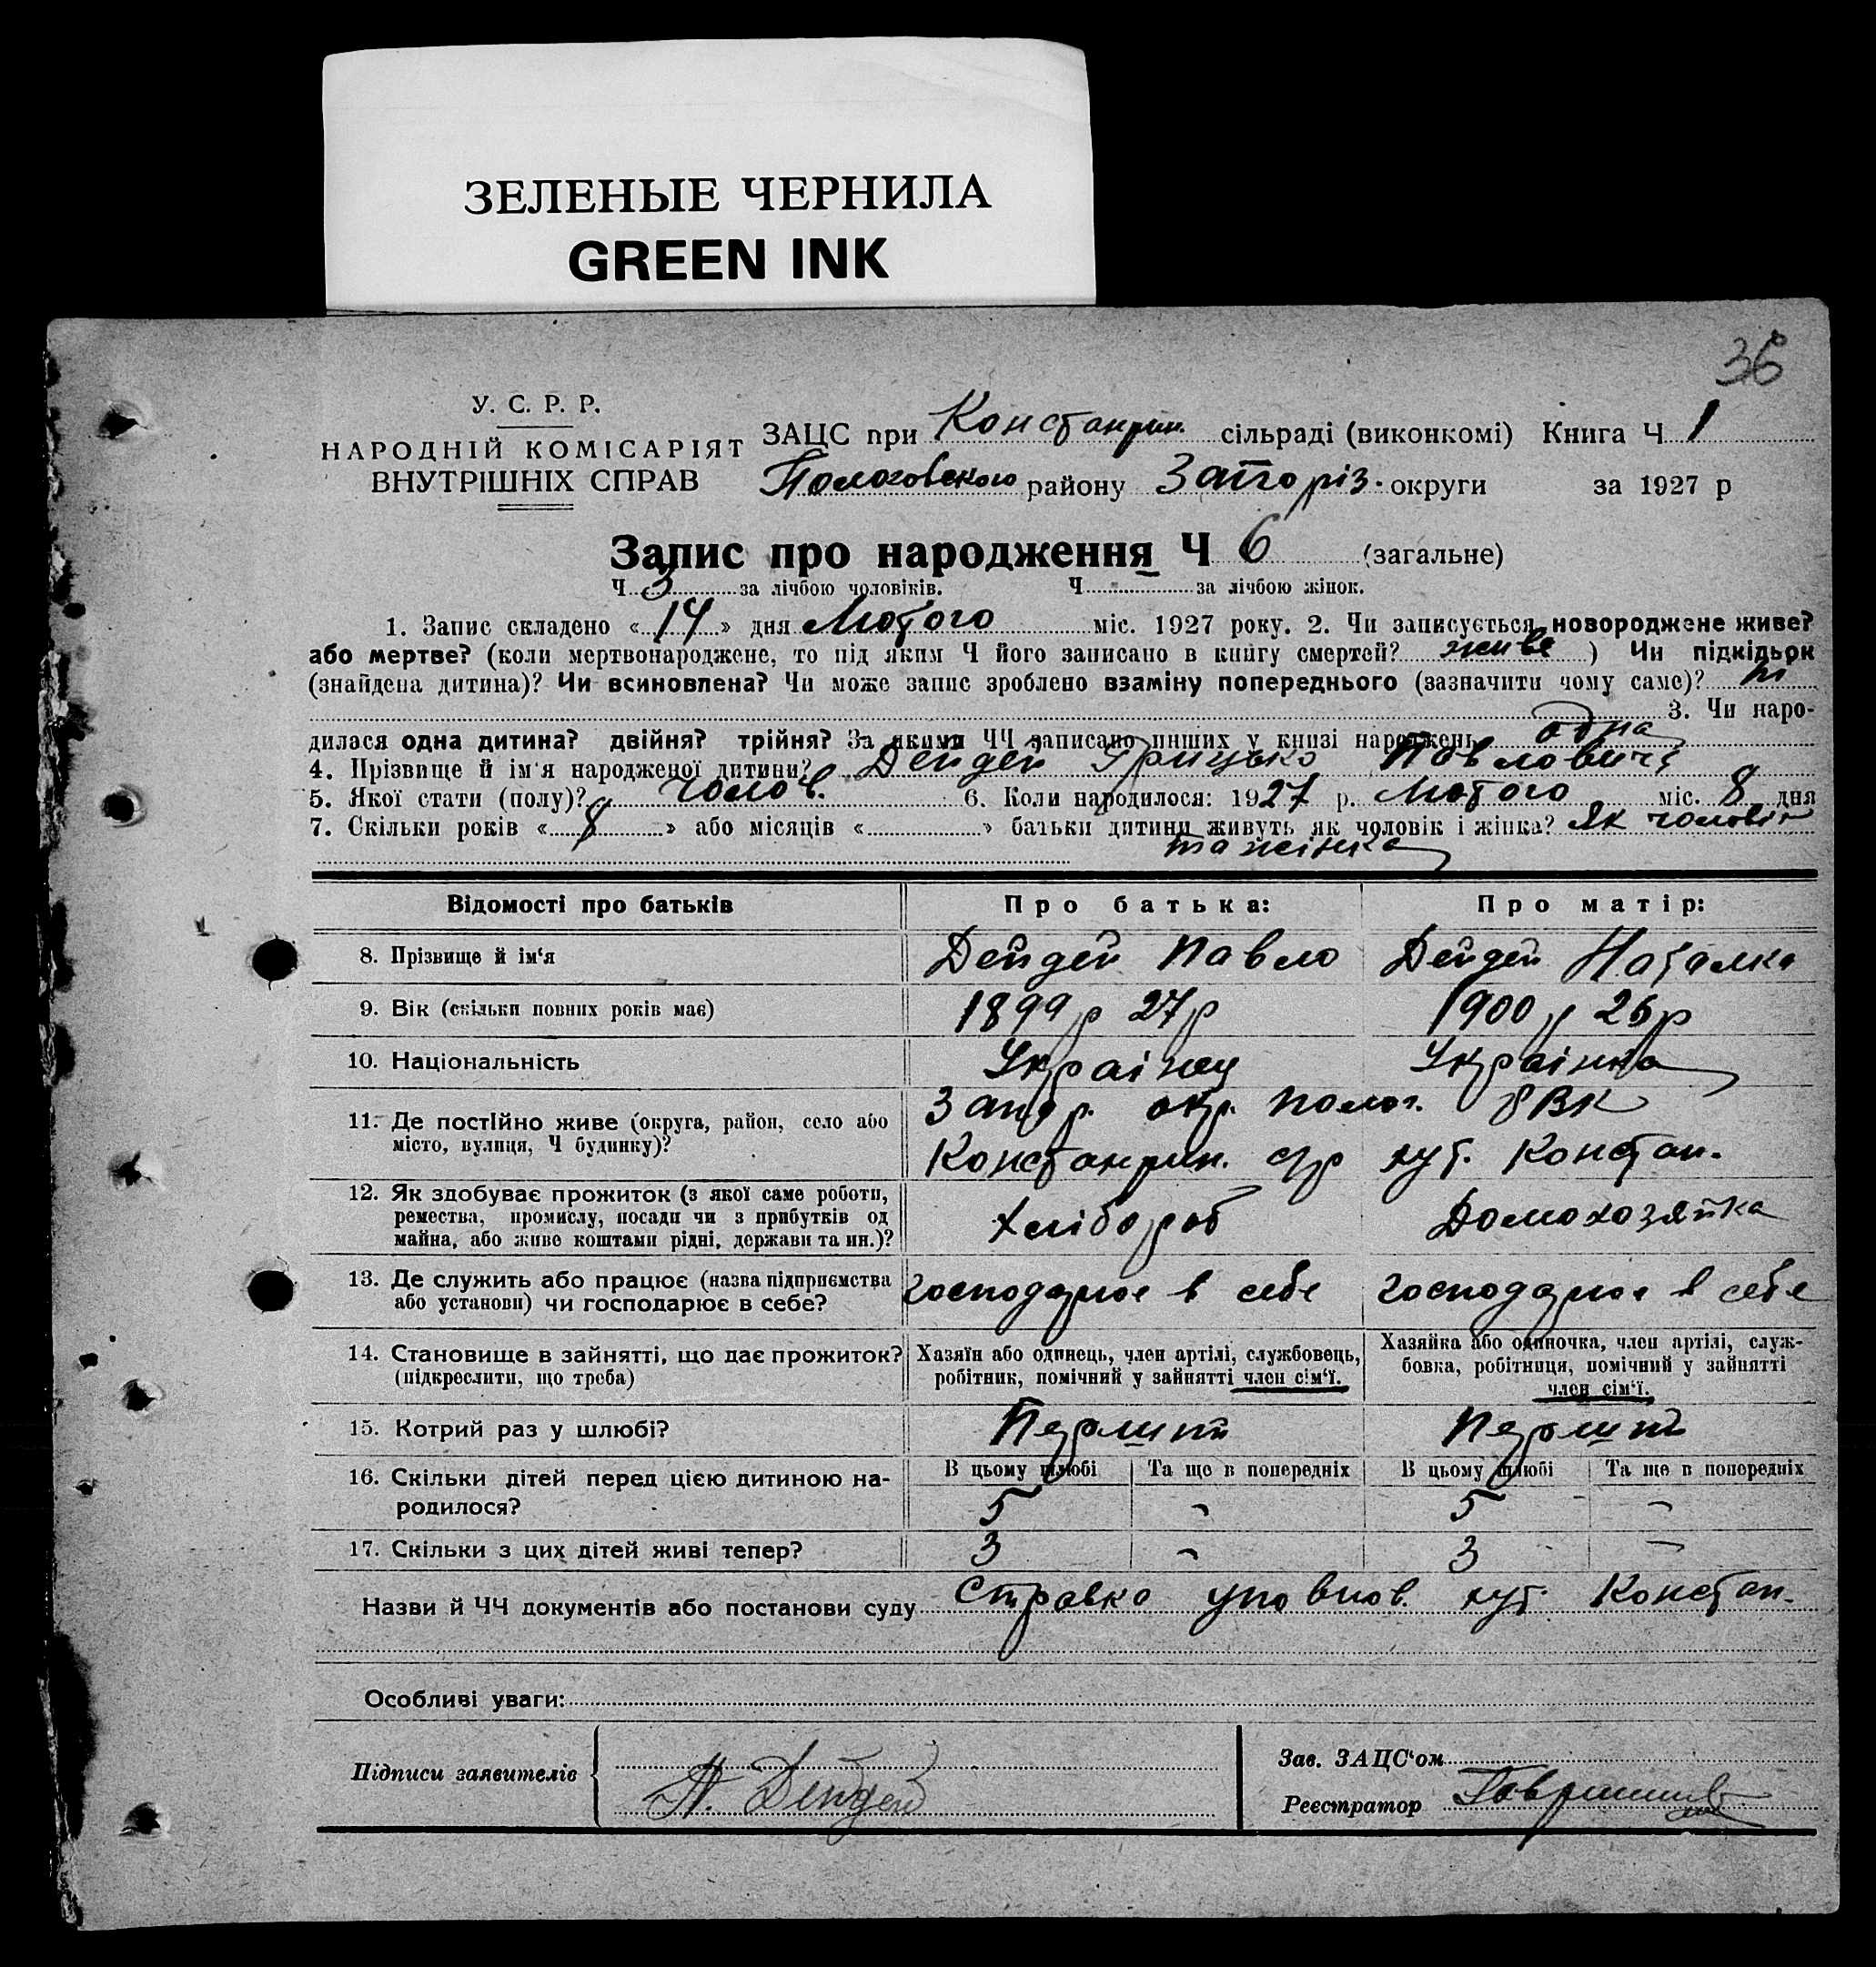 ЗЕЛЕНЫЕ ЧЕРНИЛА
GREEN INK
36
У. С. Р. Р.
НАРОДНІЙ КОМІСАРІЯТ
ВНУТРІШНІХ СПРАВ
ЗАЦС при Константин. сільраді (виконкомі) Книга Ч 1
Пологовского району Запоріз. округи за 1927 р
Запис про народження Ч 6 (загальне)
Ч 3 за лічбою чоловіків. Ч – за лічбою жінок.
1. Запис складено « 14 » дня Лютого міс. 1927 року. 2. Чи записується новороджене живе?
або мертве? (коли мертвонароджене, то під яким Ч його записано в книгу смертей? живе ) Чи підкідьок
(знайдена дитина)? Чи всиновлена? Чи може запис зроблено взаміну попереднього (зазначити чому саме)? ні
3. Чи наро-
дилася одна дитина? двійня? трійня? За якими ЧЧ записано инших у книзі народжень одна
4. Прізвище й ім'я народженої дитини? Дейдей Грицько Павлович
5. Якої стати (полу)? чолов. 6. Коли народилося: 1927 р. Лютого міс. 8 дня
7. Скільки років « 8 » або місяців « » батьки дитини живуть як чоловік і жінка? Як чоловік
та жінка
Відомості про батьків Про батька: Про матір:
8. Прізвище й ім'я Дейдей Павло Дейдей Наталка
9. Вік (скільки повних років має) 1899 р 27 р 1900 р 26 р
10. Національність Українец Українка
11. Де постійно живе (округа, район, село або Запор. окр. Полог. РВК
місто, вулиця, Ч будинку)? Константин. с/р хут. Констан.
12. Як здобуває прожиток (з якої саме роботи,
ремества, промислу, посади чи з прибутків од Хлібороб Домохозяйка
майна, або живе коштами рідні, держави та ин.)?
13. Де служить або працює (назва підприємства
або установи) чи господарює в себе? господарює в себе господарює в себе
14. Становище в зайнятті, що дає прожиток? Хазяїн або одинець, член артілі, службовець, Хазяйка або одиночка, член артілі, служ-
(підкреслити, що треба) робітник, помічний у зайнятті член сім'ї. бовка, робітниця, помічний у зайнятті
член сім'ї.
15. Котрий раз у шлюбі? Перший Перший
16. Скільки дітей перед цією дитиною на- В цьому шлюбі Та ще в попередніх В цьому шлюбі Та ще в попередніх
родилося? 5 - 5 -
17. Скільки з цих дітей живі тепер? 3 - 3 -
Назви й ЧЧ документів або постанови суду Справка уповнов. хут. Констан.
Особливі уваги:
Підписи заявителів П. Дейдей
Зав. ЗАЦС'ом
Реєстратор